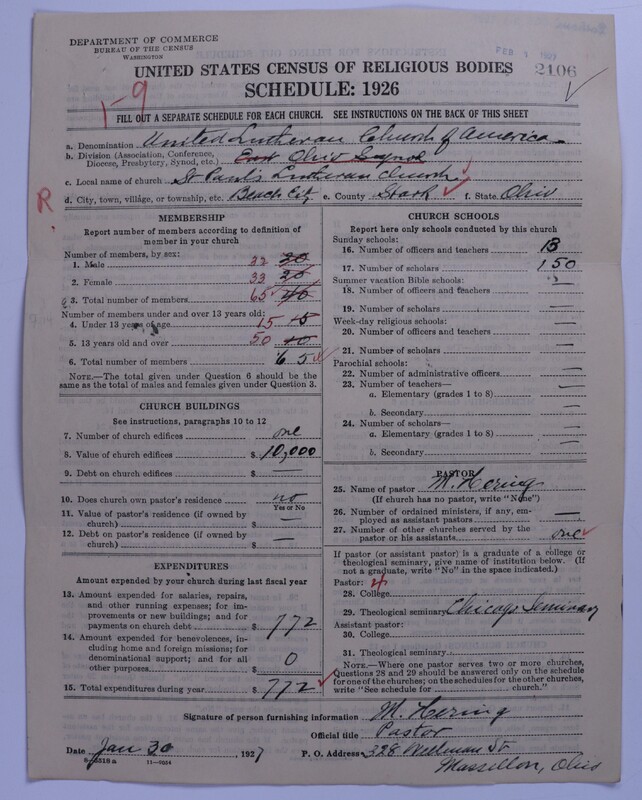 DEPARTMENT OF COMMERCE
BUREAU OF THE CENSUS
WASHINGTON
UNITED STATES CENSUS OF RELIGIOUS BODIES
2106
SCHEDULE: 1926
1-9
FILL OUT A SEPARATE SCHEDULE FOR EACH CHURCH. SEE INSTRUCTIONS ON THE BACK OF THIS SHEET
a. Denomination United Lutheran Church of America
b. Division (Association, Conference, Diocese, Presbytery, Synod, etc.) East Ohio Synod
c. Local name of church St Paul's Lutheran Church
R.
d. City, town, village, or township, etc. Beach City e. County Stark f. State Ohio
MEMBERSHIP
Report number of members according to definition of member in your church
Number of members, by sex:
1. Male 32 20
2. Female 33 20
3. Total number of members 65 40
Number of members under and over 13 years old:
4. Under 13 years of age 15 15
5. 13 years old and over 50 40
6. Total number of members 65
NOTE.—The total given under Question 6 should be the same as the total of males and females given under Question 3.
CHURCH BUILDINGS
See instructions, paragraphs 10 to 12
7. Number of church edifices one
8. Value of church edifices $ 10,000
9. Debt on church edifices $ —
10. Does church own pastor's residence no
Yes or No
11. Value of pastor's residence (if owned by church) $ —
12. Debt on pastor's residence (if owned by church) $ —
EXPENDITURES
Amount expended by your church during last fiscal year
13. Amount expended for salaries, repairs, and other running expenses; for improvements or new buildings; and for payments on church debt $ 772
14. Amount expended for benevolences, including home and foreign missions; for denominational support; and for all other purposes $ 0
15. Total expenditures during year $ 772
CHURCH SCHOOLS
Report here only schools conducted by this church
Sunday schools:
16. Number of officers and teachers 13
17. Number of scholars 150
Summer vacation Bible schools:
18. Number of officers and teachers —
19. Number of scholars —
Week-day religious schools:
20. Number of officers and teachers —
21. Number of scholars —
Parochial schools:
22. Number of administrative officers —
23. Number of teachers—
a. Elementary (grades 1 to 8) —
b. Secondary —
24. Number of scholars—
a. Elementary (grades 1 to 8) —
b. Secondary —
PASTOR
25. Name of pastor M. Hering
(If church has no pastor, write "None")
26. Number of ordained ministers, if any, employed as assistant pastors —
27. Number of other churches served by the pastor or his assistants one
If pastor (or assistant pastor) is a graduate of a college or theological seminary, give name of institution below. (If not a graduate, write "No" in the space indicated.)
Pastor: 4
28. College
29. Theological seminary Chicago Seminary
Assistant pastor:
30. College
31. Theological seminary
NOTE.—Where one pastor serves two or more churches, Questions 28 and 29 should be answered only on the schedule for one of the churches; on the schedules for the other churches, write "See schedule for ______ church."
Signature of person furnishing information M. Hering
Official title Pastor
Date Jan 20, 1927 P. O. Address 328 Wellman St
Massillon, Ohio
8-5518a 11-6054